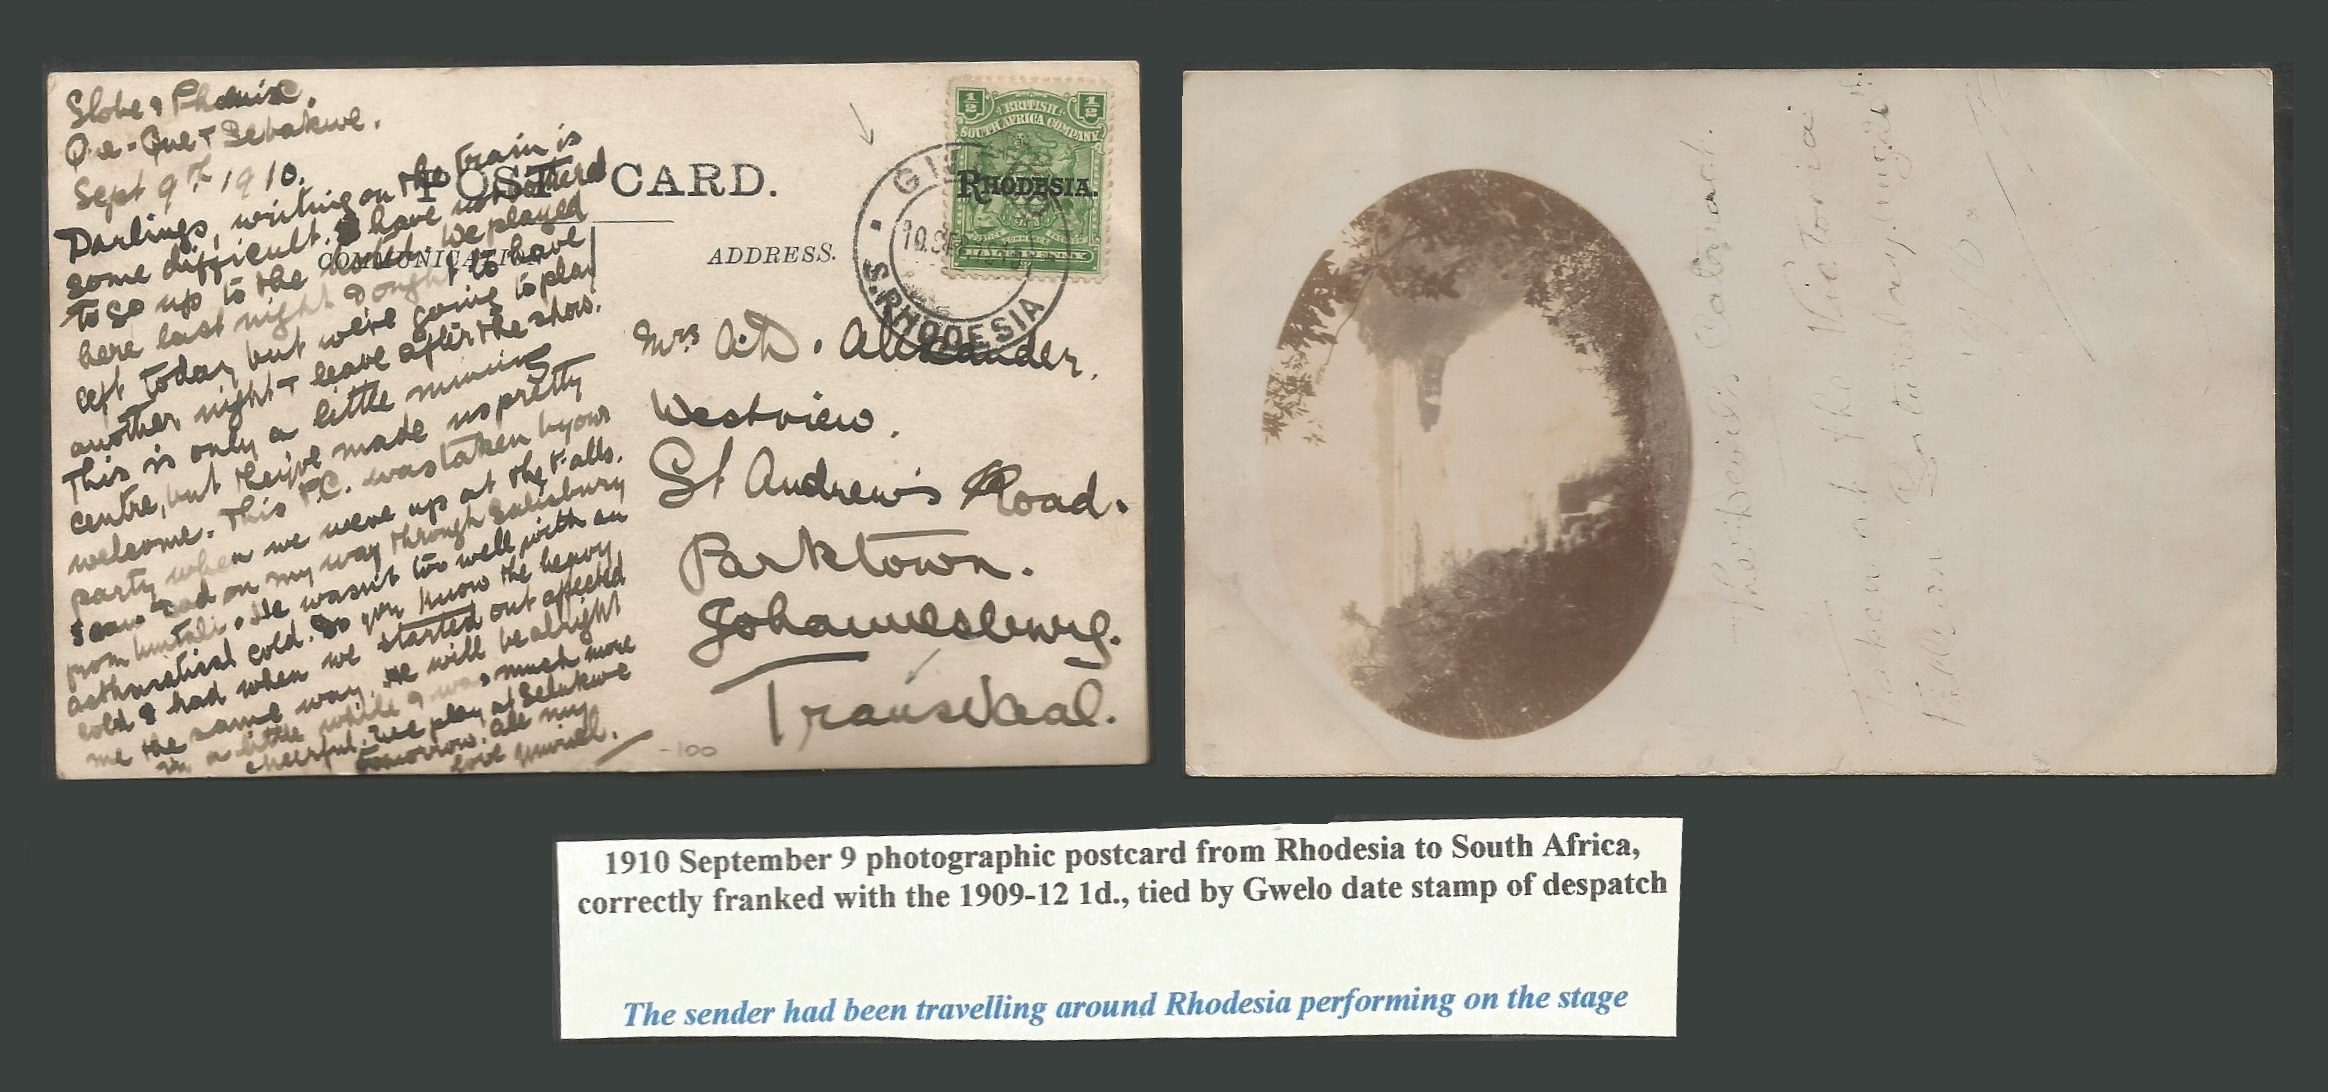 Globe & Phoenix.
Que-Que & Sebakwe.
Sept 9th 1910.
Darlings, writing on the train is
some difficult. I have not bothered
to go up to the hotel. We played
here last night & ought to have
left today but we're going to play
another night & leave after the show.
This is only a little mining
centre, but they've made us pretty
welcome. This P.C. was taken by our
party when we were up at the Falls.
I saw Dad on my way through Salisbury
from Umtali. He wasn't too well with an
asthmatical cold. Do you know the heavy
cold I had when we started out affected
me the same way. He will be alright
in a little while & was much more
cheerful. We play at Selukwe
tomorrow. All my
love Muriel.
POST CARD.
COMMUNICATION
ADDRESS.
1/2 BRITISH 1/2
SOUTH AFRICA COMPANY
RHODESIA.
JUSTICE COMMERCE FREEDOM
HALFPENNY
S. RHODESIA
10 SEP
Mrs A.D. Alexander,
Westview,
St Andrew's Road.
Parktown.
Johannesburg.
Transvaal.
-100
The Devil's Cataract.
Taken at the Victoria
Falls on Saturday August
1910
1910 September 9 photographic postcard from Rhodesia to South Africa,
correctly franked with the 1909-12 1d., tied by Gwelo date stamp of despatch
The sender had been travelling around Rhodesia performing on the stage